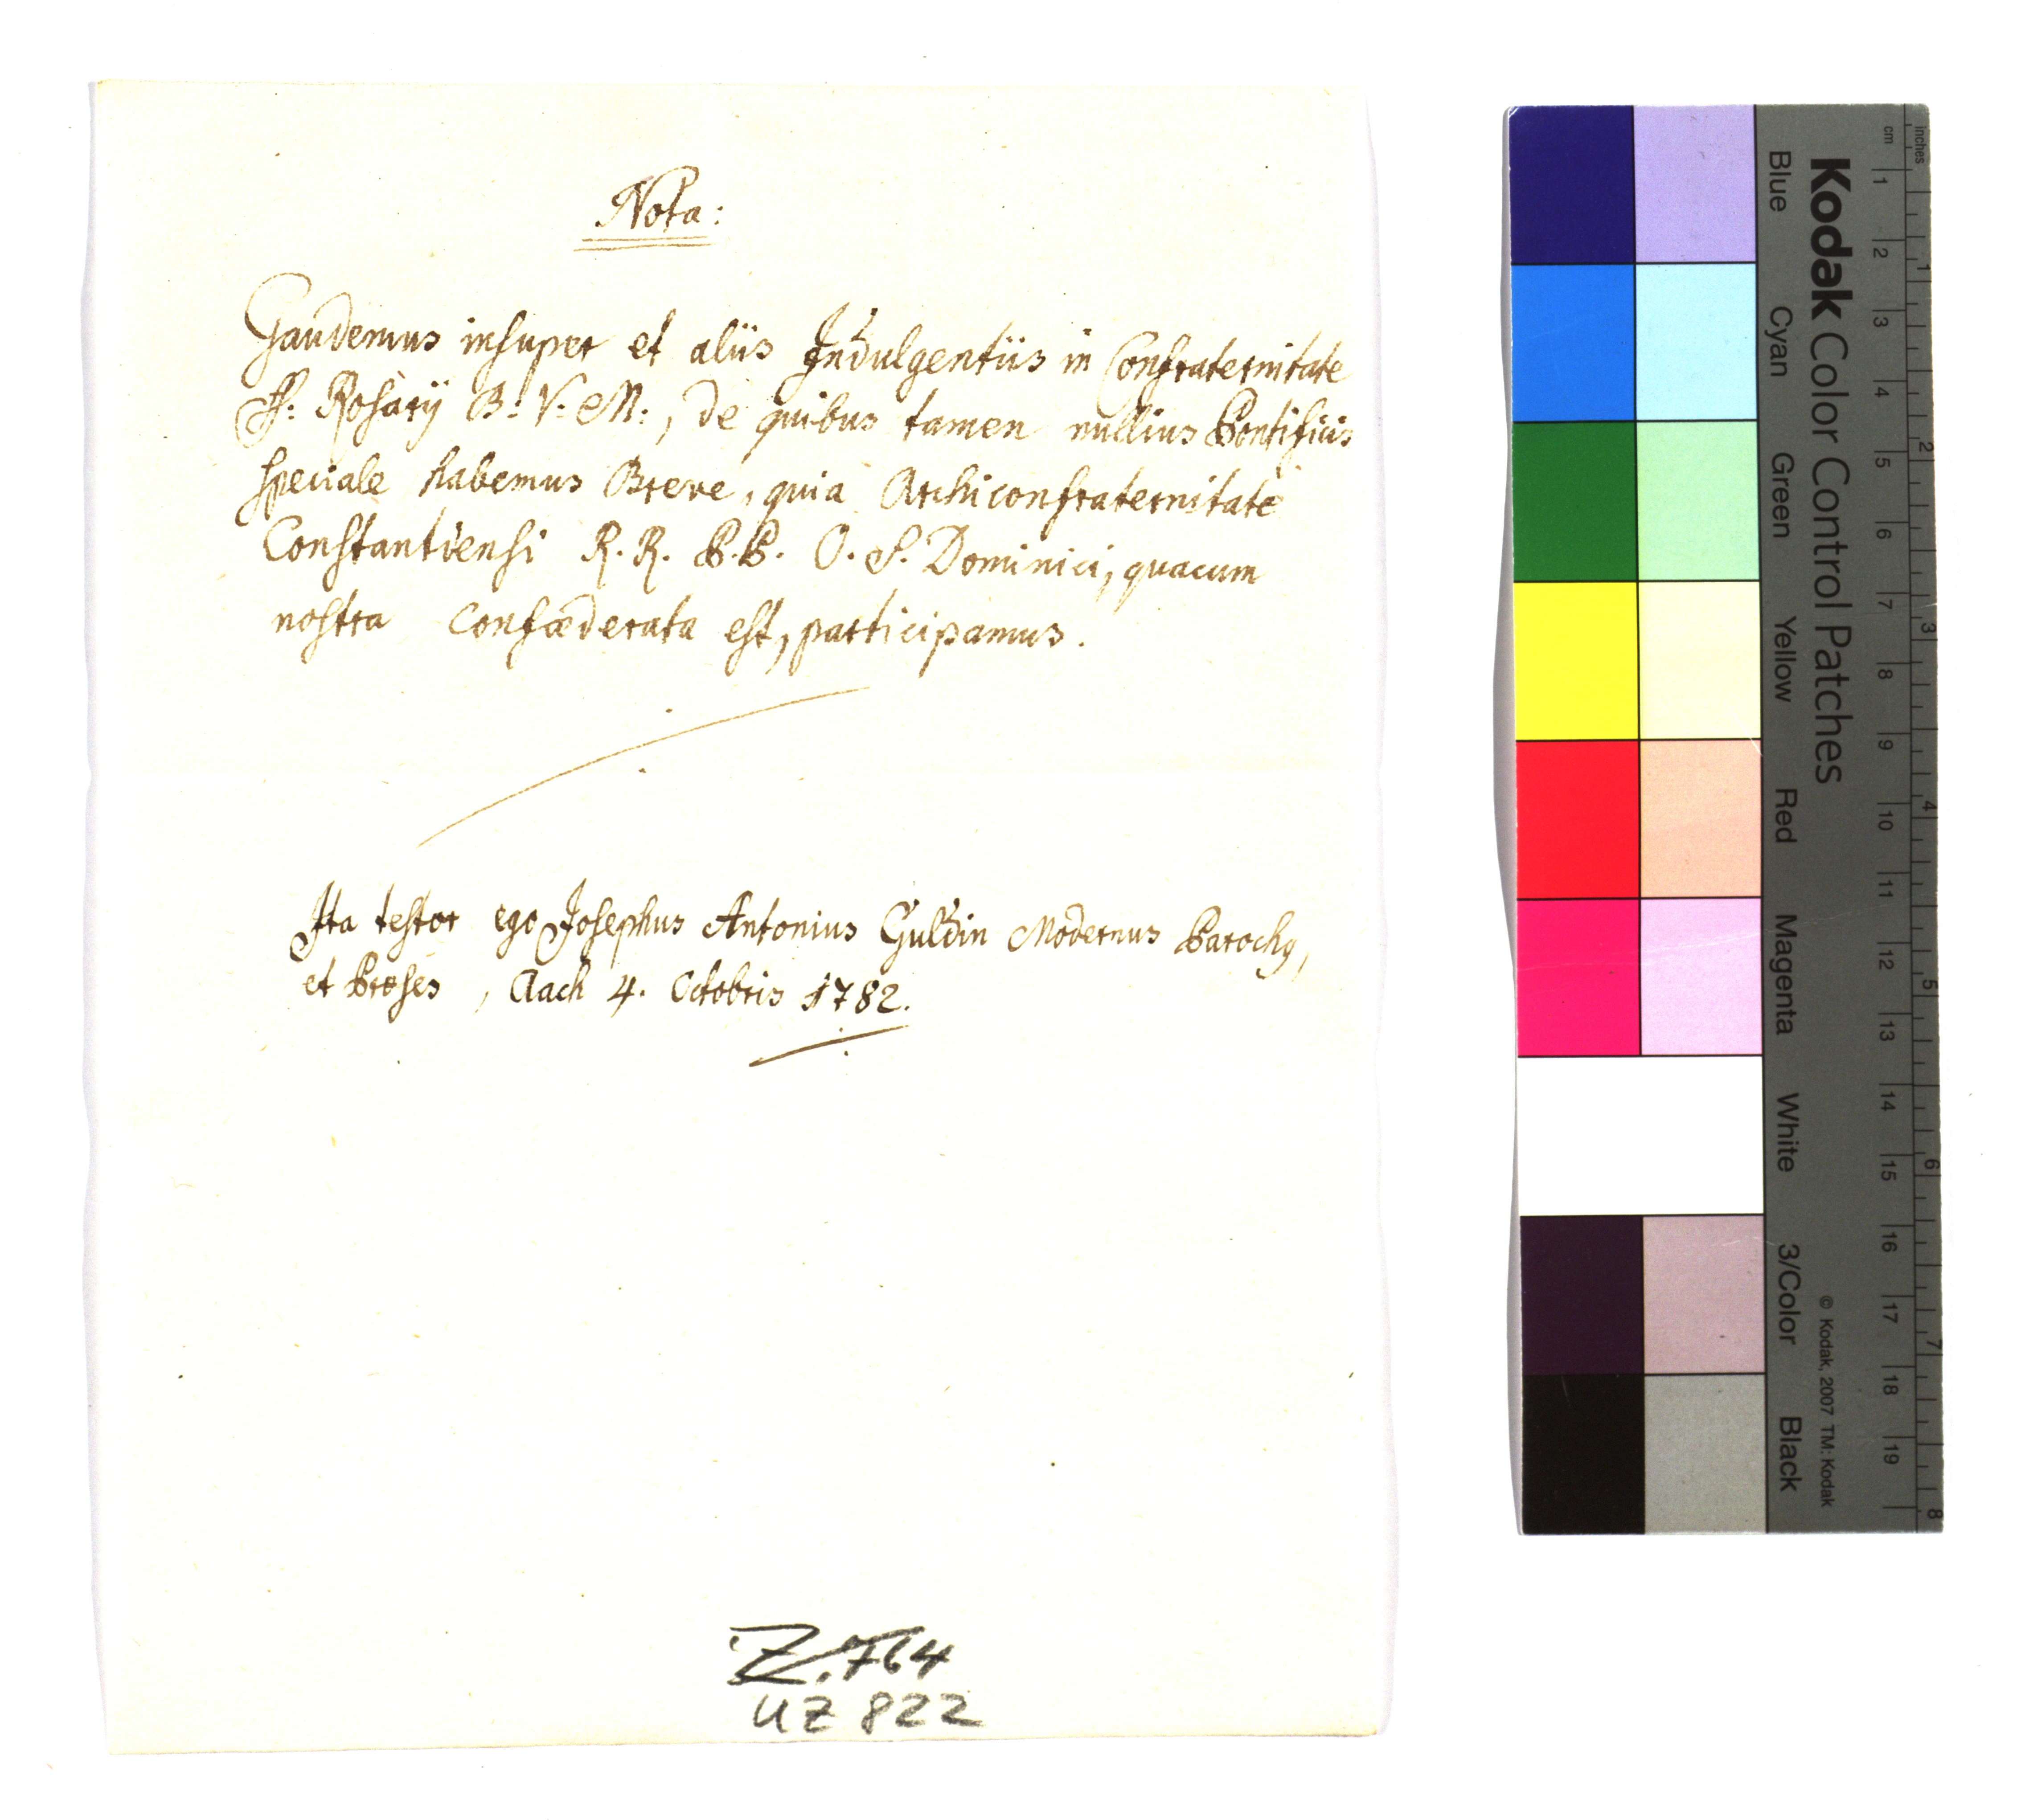 Nota:
Gaudemus insuper et aliis Indulgentiis in Confraternitate
SS: Rosarÿ B: V: M:, de quibus tamen nullius Pontificis
speciale habemus Breve, quia Archiconfraternitate
Constantiensi R. R. P. P. O. S. Dominici, quacum
nostra confæderata est, participamus.
Ita testor ego Josephus Antonius Guldin Modernus Parochq,
et Præses, Aach 4. Octobris 1782.
Z. 764
UZ 822
Kodak Color Control Patches
Blue Cyan Green Yellow Red Magenta White 3/Color Black
© Kodak, 2007 TM: Kodak
inches 1 2 3 4 5 6 7 8
cm 1 2 3 4 5 6 7 8 9 10 11 12 13 14 15 16 17 18 19